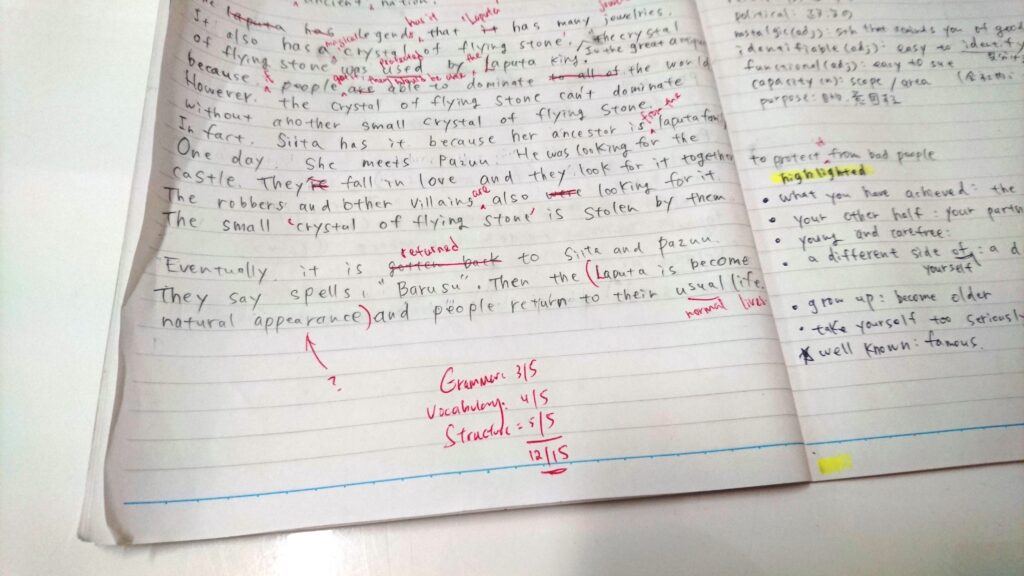 ancient nation.
the Laputa has legends that it has many jewelries.
has it "Laputa"
It also has a 'crystal of flying stone'. The crystal
magical
of flying stone was used by Laputa king.
protected the
because people are able to dominate to all of the world
However, the crystal of flying stone can't dominate
without another small crystal of flying stone.
In fact, Siita has it because her ancestor is Laputa fam
from the
One day, She meets Pazuu. He was looking for the
castle. They're fall in love and they look for it together
The robbers and other villains also were looking for it
are
The small 'crystal of flying stone' is stolen by them
returned
Eventually it is gotten back to Siita and Pazuu.
They say spells, "Barusu". Then the (Laputa is become
natural appearance) and people return to their usual life.
normal lives
?
Grammar: 3/5
Vocabulary: 4/5
Structure = 5/5
12/15
political:
nostalgic (adj): sth that reminds you of good
identifiable (adj): easy to identify
functional (adj): easy to use
capacity (n): scope / area
purpose: 目的
it
to protect from bad people
highlighted
• what you have achieved: the
• your other half: your partn
• young and carefree:
• a different side of yourself: a d
• grow up: become older
• take yourself too seriously
well known: famous.